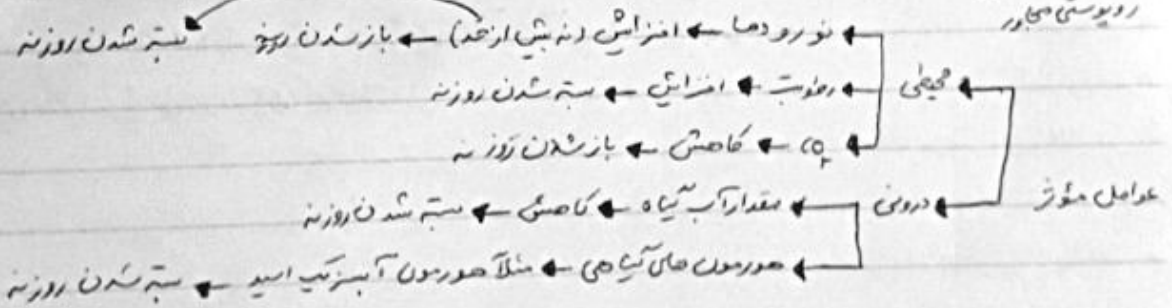 روپوستی مجاور
نور و دما ← افزایش (نه بیش از حد) ← باز شدن روزنه بسته شدن روزنه
محیطی ← رطوبت ← افزایش ← بسته شدن روزنه
CO₂ ← کاهش ← باز شدن روزنه
عوامل مؤثر درونی ← مقدار آب گیاه ← کاهش ← بسته شدن روزنه
هورمون های گیاهی ← مثلاً هورمون آبسیزیک اسید ← بسته شدن روزنه